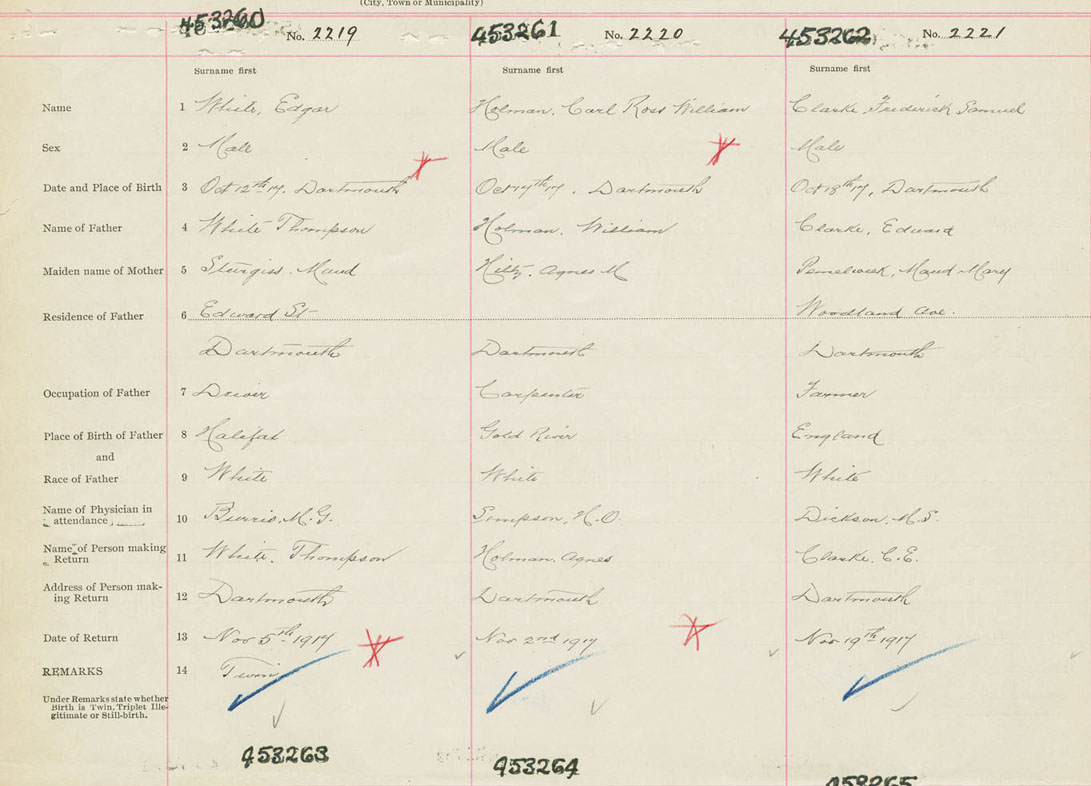 (City, Town or Municipality)
453260 No. 2219 453261 No. 2220 453262 No. 2221
Surname first Surname first Surname first
Name 1 White, Edgar Holman, Carl Ross William Clarke, Frederick Samuel
Sex 2 Male Male Male
Date and Place of Birth 3 Oct 12th 17, Dartmouth Oct 17th 17, Dartmouth Oct 18th 17, Dartmouth
Name of Father 4 White Thompson Holman, William Clarke, Edward
Maiden name of Mother 5 Sturgiss, Maud Hiltz, Agnes M Maud Mary
Residence of Father 6 Edward St Woodland Ave.
Dartmouth Dartmouth Dartmouth
Occupation of Father 7 Carpenter Farmer
Place of Birth of Father 8 Halifax Gold River England
and
Race of Father 9 White White White
Name of Physician in
attendance 10 Burris, M.G. Simpson, H.O. Dickson, M.S.
Name of Person making
Return 11 White, Thompson Holman, Agnes Clarke, C.E.
Address of Person mak-
ing Return 12 Dartmouth Dartmouth Dartmouth
Date of Return 13 Nov 5th 1917 Nov 2nd 1917 Nov 19th 1917
REMARKS 14 Twin
Under Remarks state whether
Birth is Twin, Triplet Ille-
gitimate or Still-birth.
453263 453264 453265